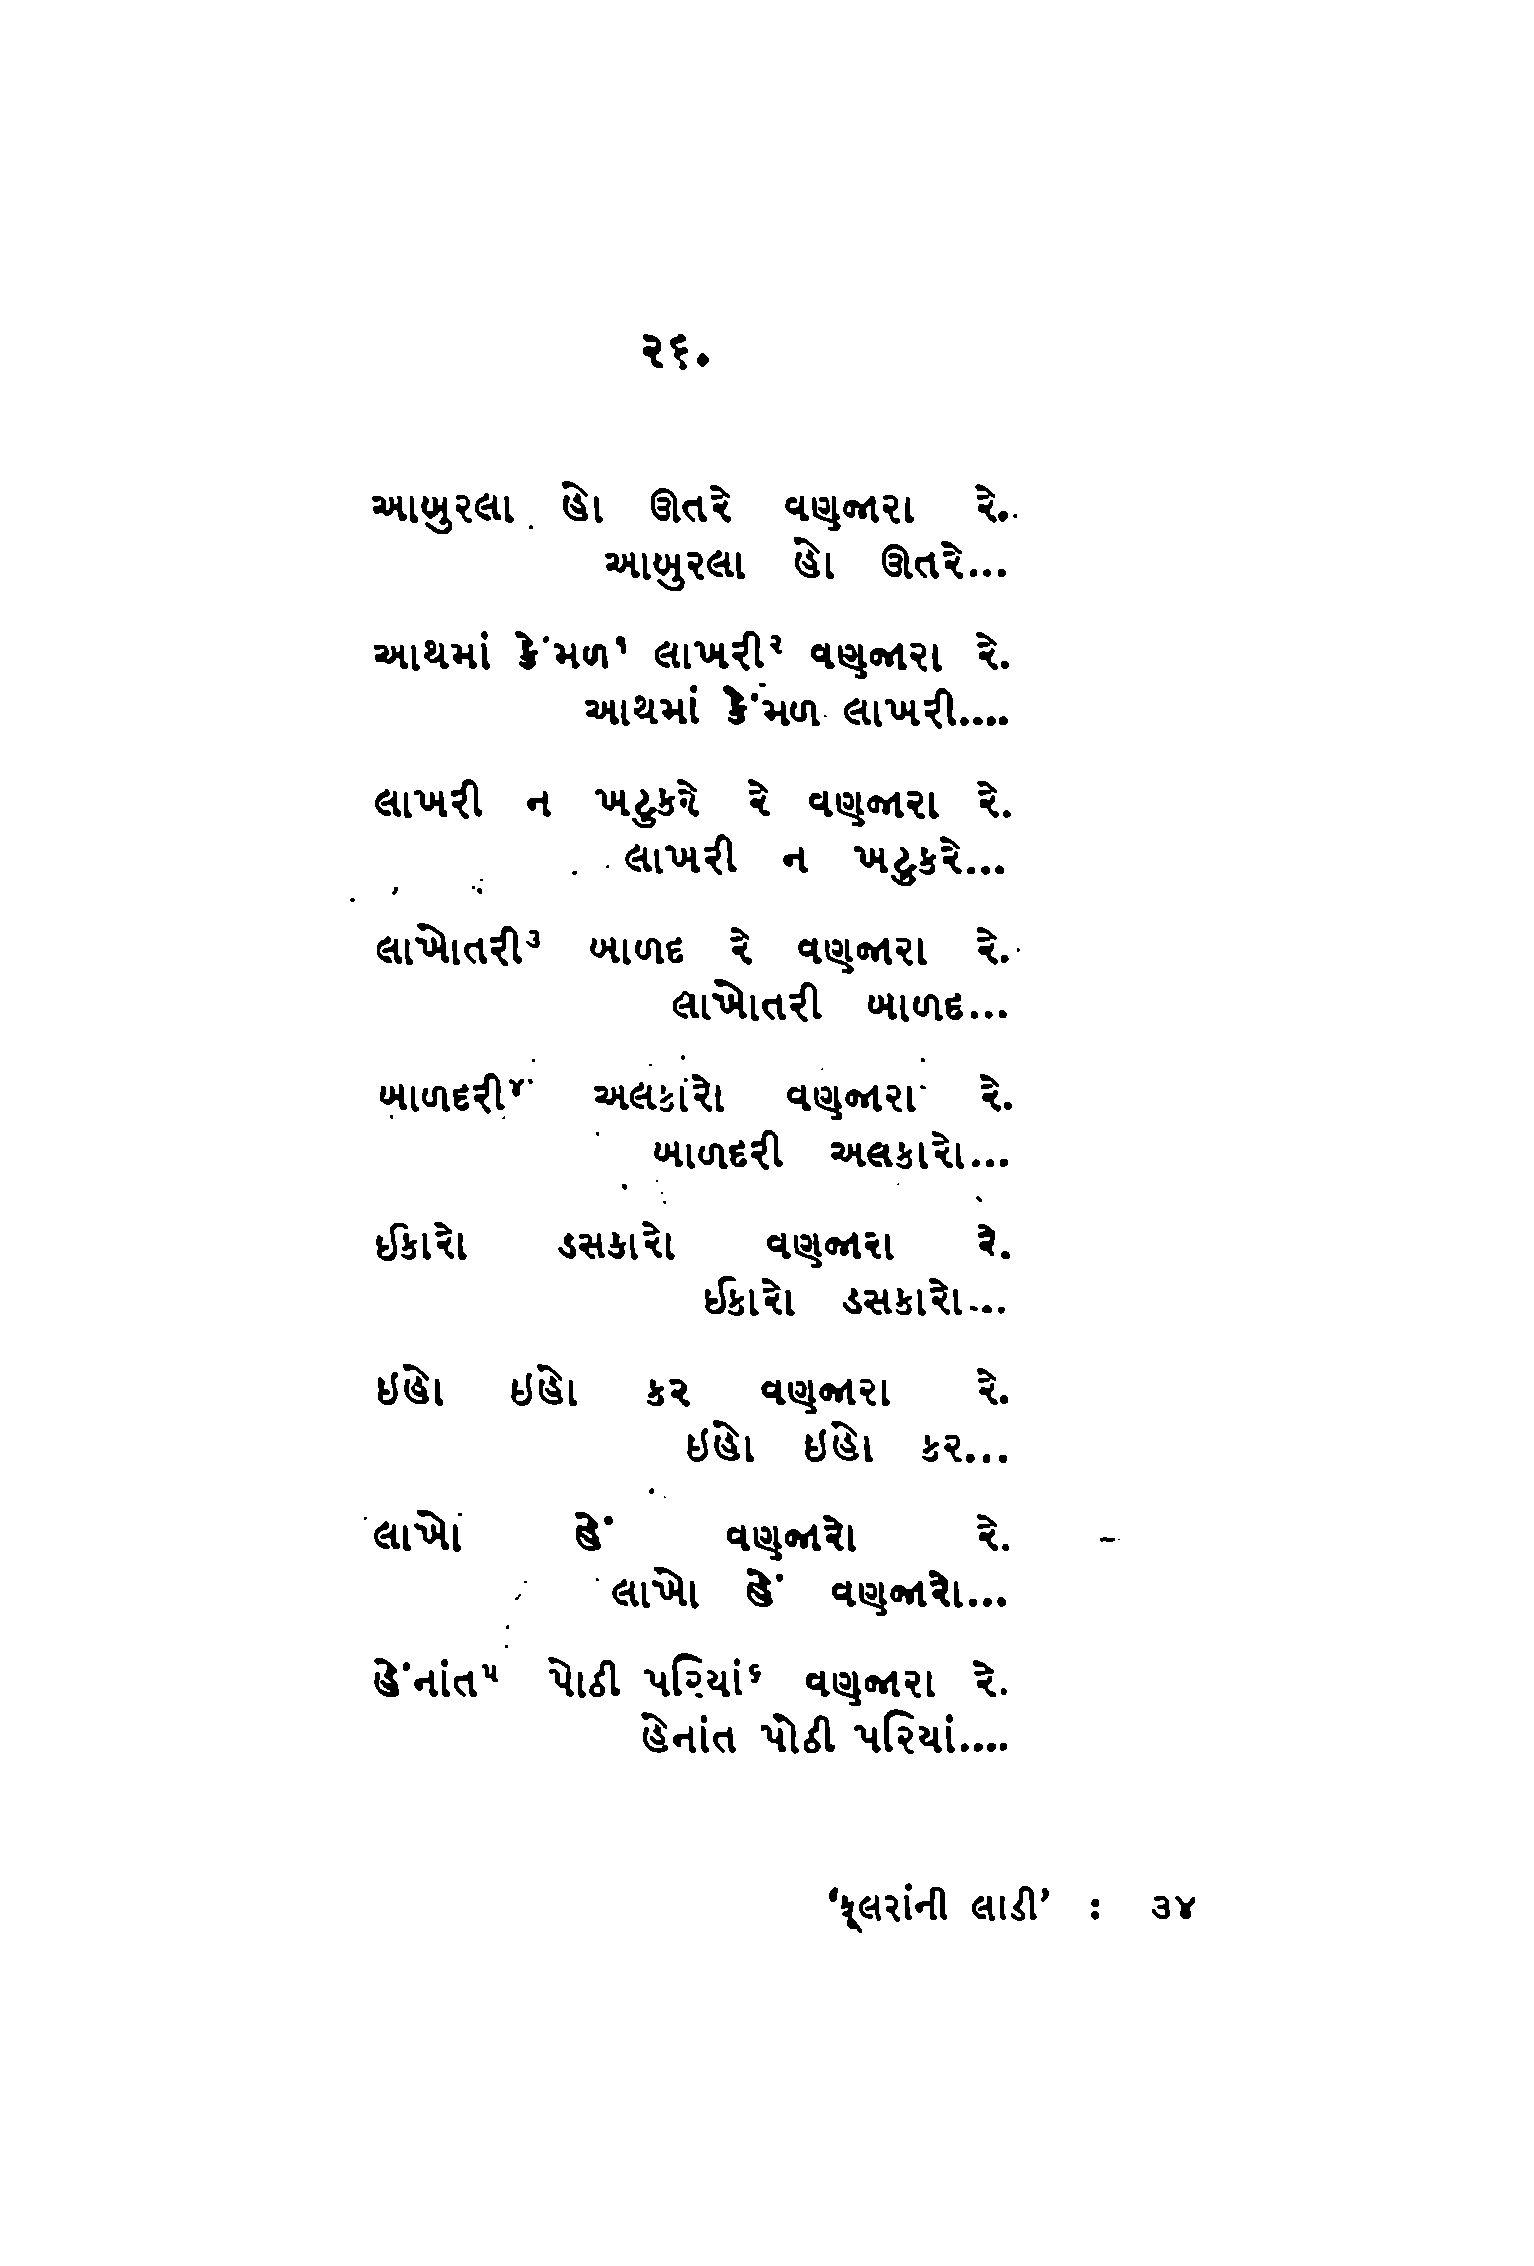 ૨૬.
આબુરલા હો ઊતરે વણજારા રે.
આબુરલા હો ઊતરે...
આથમાં કેંમળ¹ લાખરી² વણજારા રે.
આથમાં કેંમળ લાખરી....
લાખરી ન ખટુકરે રે વણજારા રે.
લાખરી ન ખટુકરે...
લાખોતરી³ બાળદ રે વણજારા રે.
લાખોતરી બાળદ...
બાળદરી૪ અલકારો વણજારા રે.
બાળદરી અલકારો...
ઈકારો ડસકારો વણજારા રે.
ઈકારો ડસકારો...
ઇહો ઇહો કર વણજારા રે.
ઇહો ઇહો કર...
લાખો હેં વણજારો રે.
લાખો હેં વણજારો...
હેંનાંત૫ પોઠી પરિયાં૬ વણજારા રે.
હેનાંત પોઠી પરિયાં....
‘ફૂલરાંની લાડી’ : ૩૪